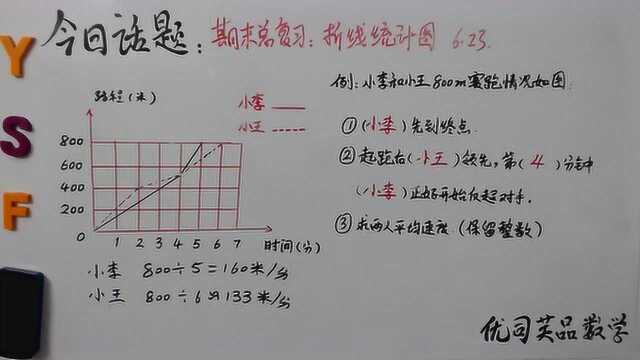 今日话题：期末总复习：折线统计图 6.23.
Y
S
F
路程(米)
小李
小王
800
600
400
200
0 1 2 3 4 5 6 7 时间(分)
例：小李和小王800m赛跑情况如图：
①(小李)先到终点.
②起跑后(小王)领先,第(4)分钟
(小李)正好开始反超对手.
③求两人平均速度.(保留整数)
小李 800÷5=160米/分
小王 800÷6≈133米/分
优司芙品数学